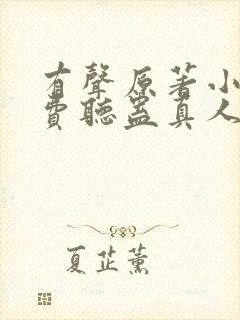 有聲原著小
費聽蠱真人
夏芷薰